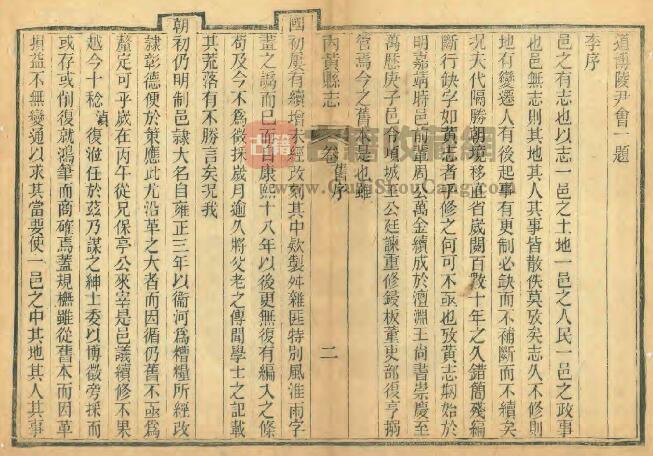 道博陵尹會一題
李序
邑之有志也以志一邑之土地一邑之人民一邑之政事
也邑無志則其地其人其事皆散佚莫攷矣志久不修則
地有變遷人有後起事有更制必缺而不補斷而不續矣
況大代隔勝朝境移直省歲閱百數十年之久錯簡殘編
斷行缺字如黄志者乎修之何可不亟也攷黄志剏始於
明嘉靖時邑前輩周公萬金續成於澶淵王尚書崇慶至
萬歷庚子邑令項城公廷諫重修鋟板董吏部復亨撝
管焉今之舊本是也雖
内黄縣志 卷 舊序 二
國初屢有續增未經改刻其中欵製舛雜匪特別風淮雨字
畫之譌而已而自康熙十八年以後更無復有編入之條
苟及今不爲徵採歲月逾久將父老之傳聞學士之記載
其荒落有不勝言矣況我
朝初仍明制邑隸大名自雍正三年以衞河爲糟糧所經改
隸彰德便於策應此尤沿革之大者而因循仍舊不亟爲
釐定可乎歲在丙午從兄保亭公來宰是邑議續修不果
越今十稔禎復涖任於茲乃謀之紳士委以博徵旁採而
或存或倒復就鴻筆而商確焉蓋規橅雖從舊本而因革
損益不無變通以求其當要使一邑之中其地其人其事
古籍收藏网
www.GuJiShouCang.com